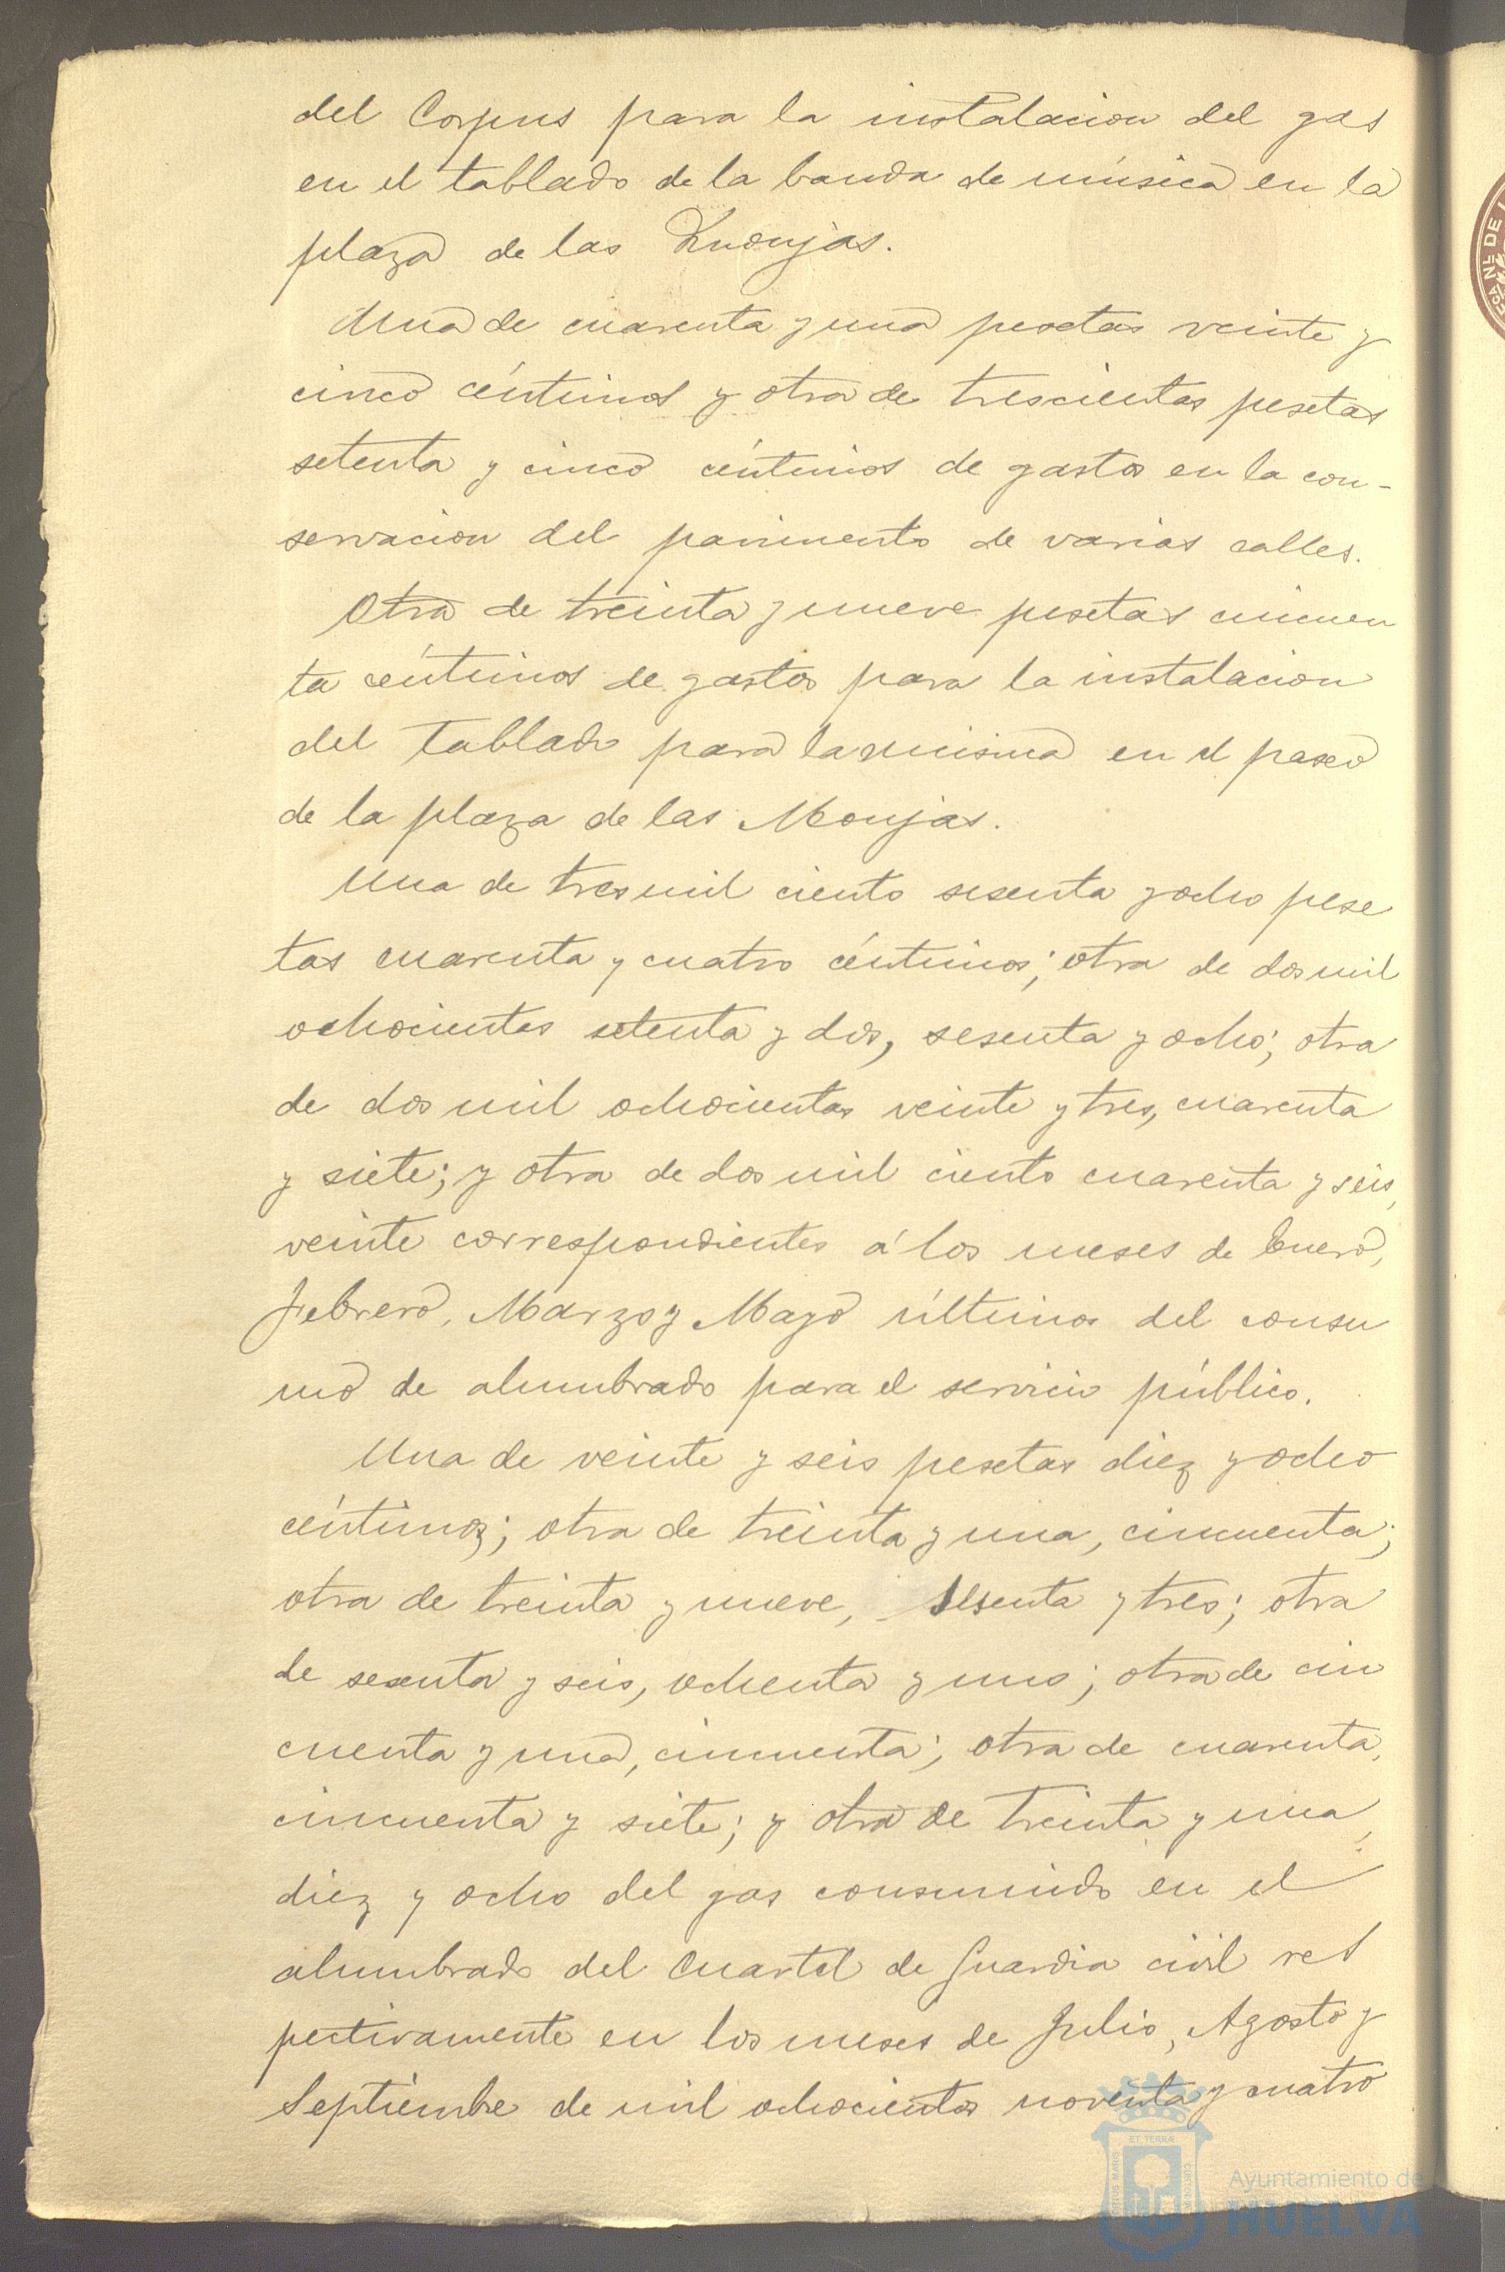 del Corpus para la instalacion del gas
en el tablado de la banda de música en la
plaza de las Monjas.
Una de cuarenta y una pesetas veinte y
cinco céntimos y otra de trescientas pesetas
setenta y cinco céntimos de gastos en la con-
servacion del pavimento de varias calles.
Otra de treinta y nueve pesetas cincuen
ta céntimos de gastos para la instalacion
del tablado para la misma en el paseo
de la plaza de las Monjas.
Una de tres mil ciento sesenta y ocho pese
tas cuarenta y cuatro céntimos; otra de dos mil
ochocientas setenta y dos, sesenta y ocho; otra
de dos mil ochocientas veinte y tres, cuarenta
y siete; y otra de dos mil ciento cuarenta y seis,
veinte correspondientes á los meses de Enero,
Febrero, Marzo y Mayo últimos del consu
mo de alumbrado para el servicio público.
Una de veinte y seis pesetas diez y ocho
céntimos; otra de treinta y una, cincuenta;
otra de treinta y nueve, sesenta y tres; otra
de sesenta y seis, ochenta y uno; otra de cin
cuenta y una, cincuenta; otra de cuarenta,
cincuenta y siete; y otra de treinta y una,
diez y ocho del gas consumido en el
alumbrado del Cuartel de Guardia civil res
pectivamente en los meses de Julio, Agosto y
Septiembre de mil ochocientos noventa y cuatro
Ayuntamiento de
HUELVA